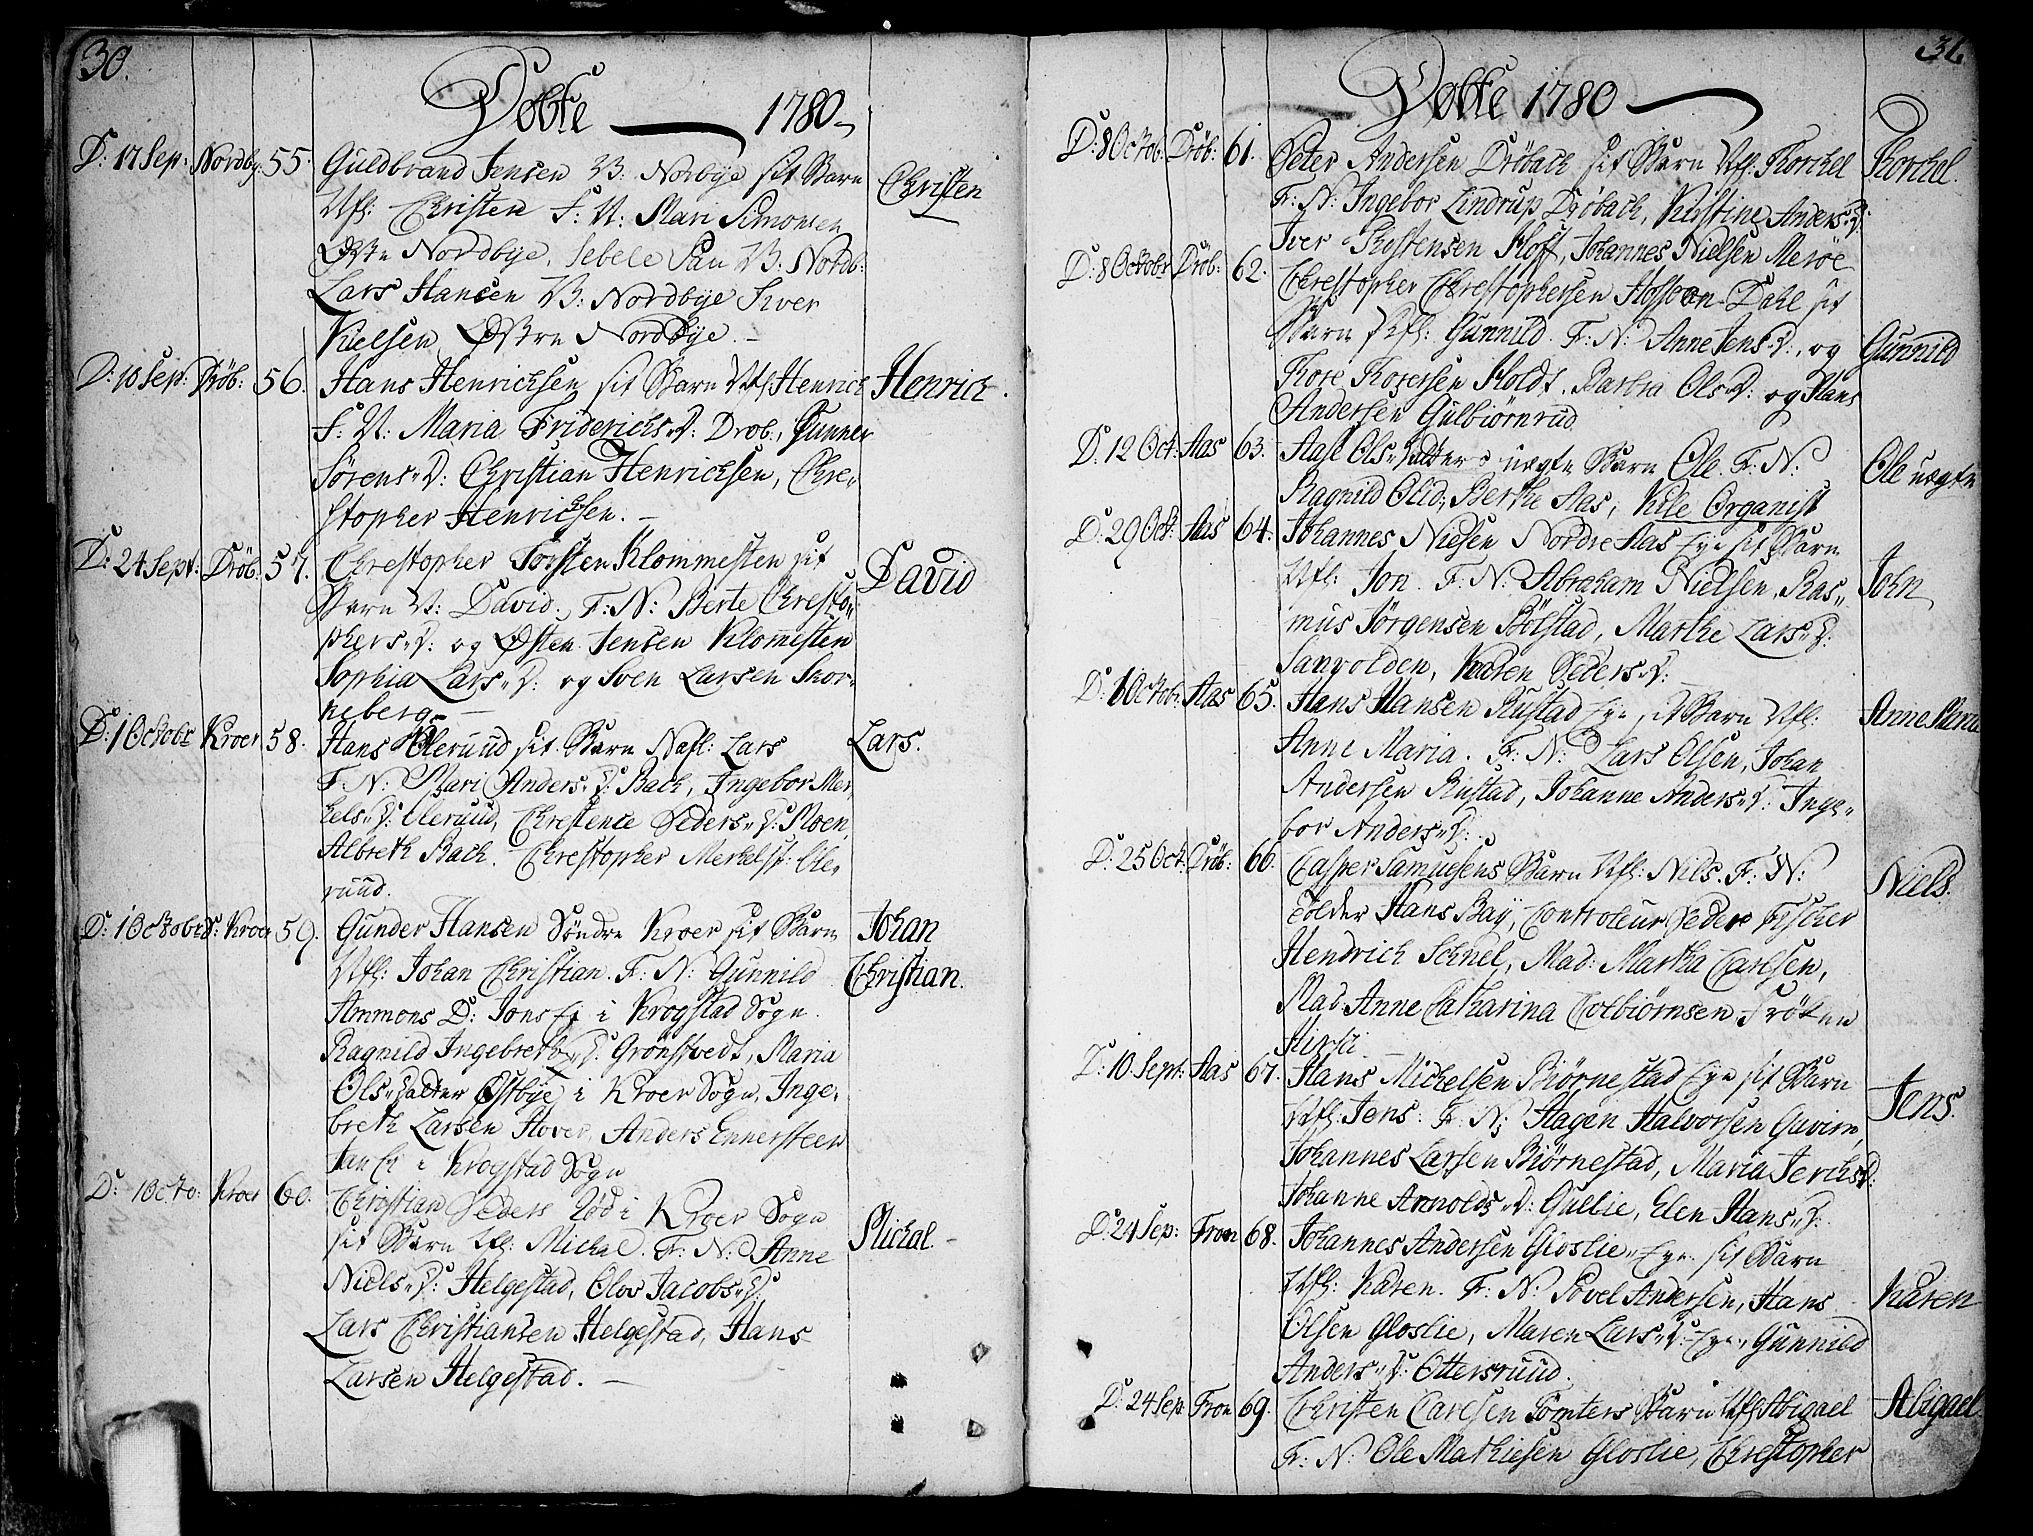 30.
Döbte 1780
D: 17 Sep: Nordby: 55. Guldbrand Jensen V: Norbÿe sit Barn Christen
Nfl: Christen F: N: Mari Simonsen
Østre Nordbÿe, Sebele Pau V: Nordb:
Lars Hansen V: Nordbÿe Siver
Kielsen Østre Nordbÿe.
D: 10 Sep: Dröb: 56. Hans Henrichsen sit Barn Nfl: Henrich Henrich.
F: N: Maria Friderichs D: Drob:, Gunner
Sörens D: Christian Henrichsen, Chre-
stopher Henrichsen.
D: 24 Sept: Dröb: 57. Chrestopher Torsten Klommesten sit David
Barn N: David. F: N: Berte Chresto-
phers D: og Østen Jensen Klommesten
Sophia Lars D: og Sven Larsen Skor-
neberg
D: 1 Octobr Kroer 58. Hans Oleruud sit Barn Nafl: Lars Lars.
F: N: Mari Anders D: Bach, Ingebor Mer-
kels D: Oleruud, Chrestence Peders D: Moen,
Albreth Bach. Chrestopher Merkelst: Ole-
ruud.
D: 1 Octobr S: Kroer 59. Gunder Hansen Söndre Kroer sit Barn Johan
Nfl: Johan Christian. F: N: Gunnild Christian.
Ammons D: Jons Ey i Krogstad Sogn.
Ragnild Ingebreths D: Grönstvedt, Maria
Ols Datter Østbÿe i Kroer Sogn, Inge-
breth Larsen Hover, Anders Ennersteen
i Krogstad Sogn
D: 1 Octo: Kroer 60. Christian Peders Röd i Kroer Sogn
sit Barn Nfl: Michal. F: N: Anne Michal.
Niels D: Helgestad, Olov Jacobs D:
Lars Christiansen Helgestad, Hans
Larsen Helgestad.
31.
Döbte 1780
D: 8 Octob: Dröb: 61. Peter Andersen Dröbach sit Barn Nfl: Torckel Torckel.
F: N: Ingebor Lindrup Dröbach, Kirstine Anders D:
Iver Thostensen Hoff, Johannes Nielsen Meröe
D: 8 Octobr Dröb: 62. Chrestopher Chrestophersen Hosseon Dahl sit
Barn Nfl: Gunnild. F: N: Anne Jens D:, og Gunnild
Tore Toresen Holdt. Barbra Ols D: og Hans
Andersen Gulbiörnrud
D: 12 Oct: Aas 63. Aase Ols Datters uægte Barn Ole. F: N: Ole uægte
Ragnild Olsd; Berthe Aas, Kile Organist
D: 29 Oct: Aas 64. Johannes Nielsen Nordre Aas Eye sit Barn
Nfl: Jon. F: N: Abraham Nielsen. Ras- John
mus Jörgensen Bölstad, Marthe Lars D:
Sanvolden, Karen Peders D:
D: 1 Octob: Aas 65. Hans Hansen Rustad Eye sit Barn Nfl: Anne Maria
Anne Maria. F: N: Lars Olsen, Johan
Andersen Rustad, Johanne Anders D: Inge-
bor Anders D:
D: 25 Oct: Dröb: 66. Casper Samuesens Barn Nfl: Nils. F: N: Niels.
Tolder Hans Baÿ, Controleur Peder Fischer
Hendrich Schnel, Mad: Martha Carlsen,
Mad Anne Catharina Colbiörnsen, Fröken
D: 10 Sept: Aas 67. Hans Michelsen Biörnestad Eye sit Barn
Nfl: Jens. F: N: Hagen Halvorsen Guvim, Jens.
Johannes Larsen Biörnestad, Maria Jerichs D:
Johanne Arnolds D: Gullie, Elen Hans D:
D: 24 Sep: Fron 68. Johannes Andersen Gloslie Eye sit Barn
Nfl: Karen. F: N: Povel Andersen, Hans Karen
Olsen Gloslie, Maren Lars D: Eye, Gunnild
Anders D: Ottersruud.
D: 24 Sep: Fron 69. Christen Carlsen Tomters Barn Nfl: Abigael Abigael.
F: N: Ole Mathiesen Gloslie, Chrestopher